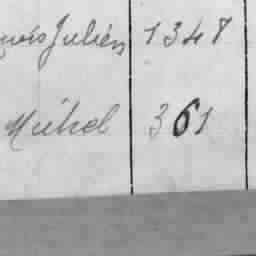 Julien 1348
Michel 361